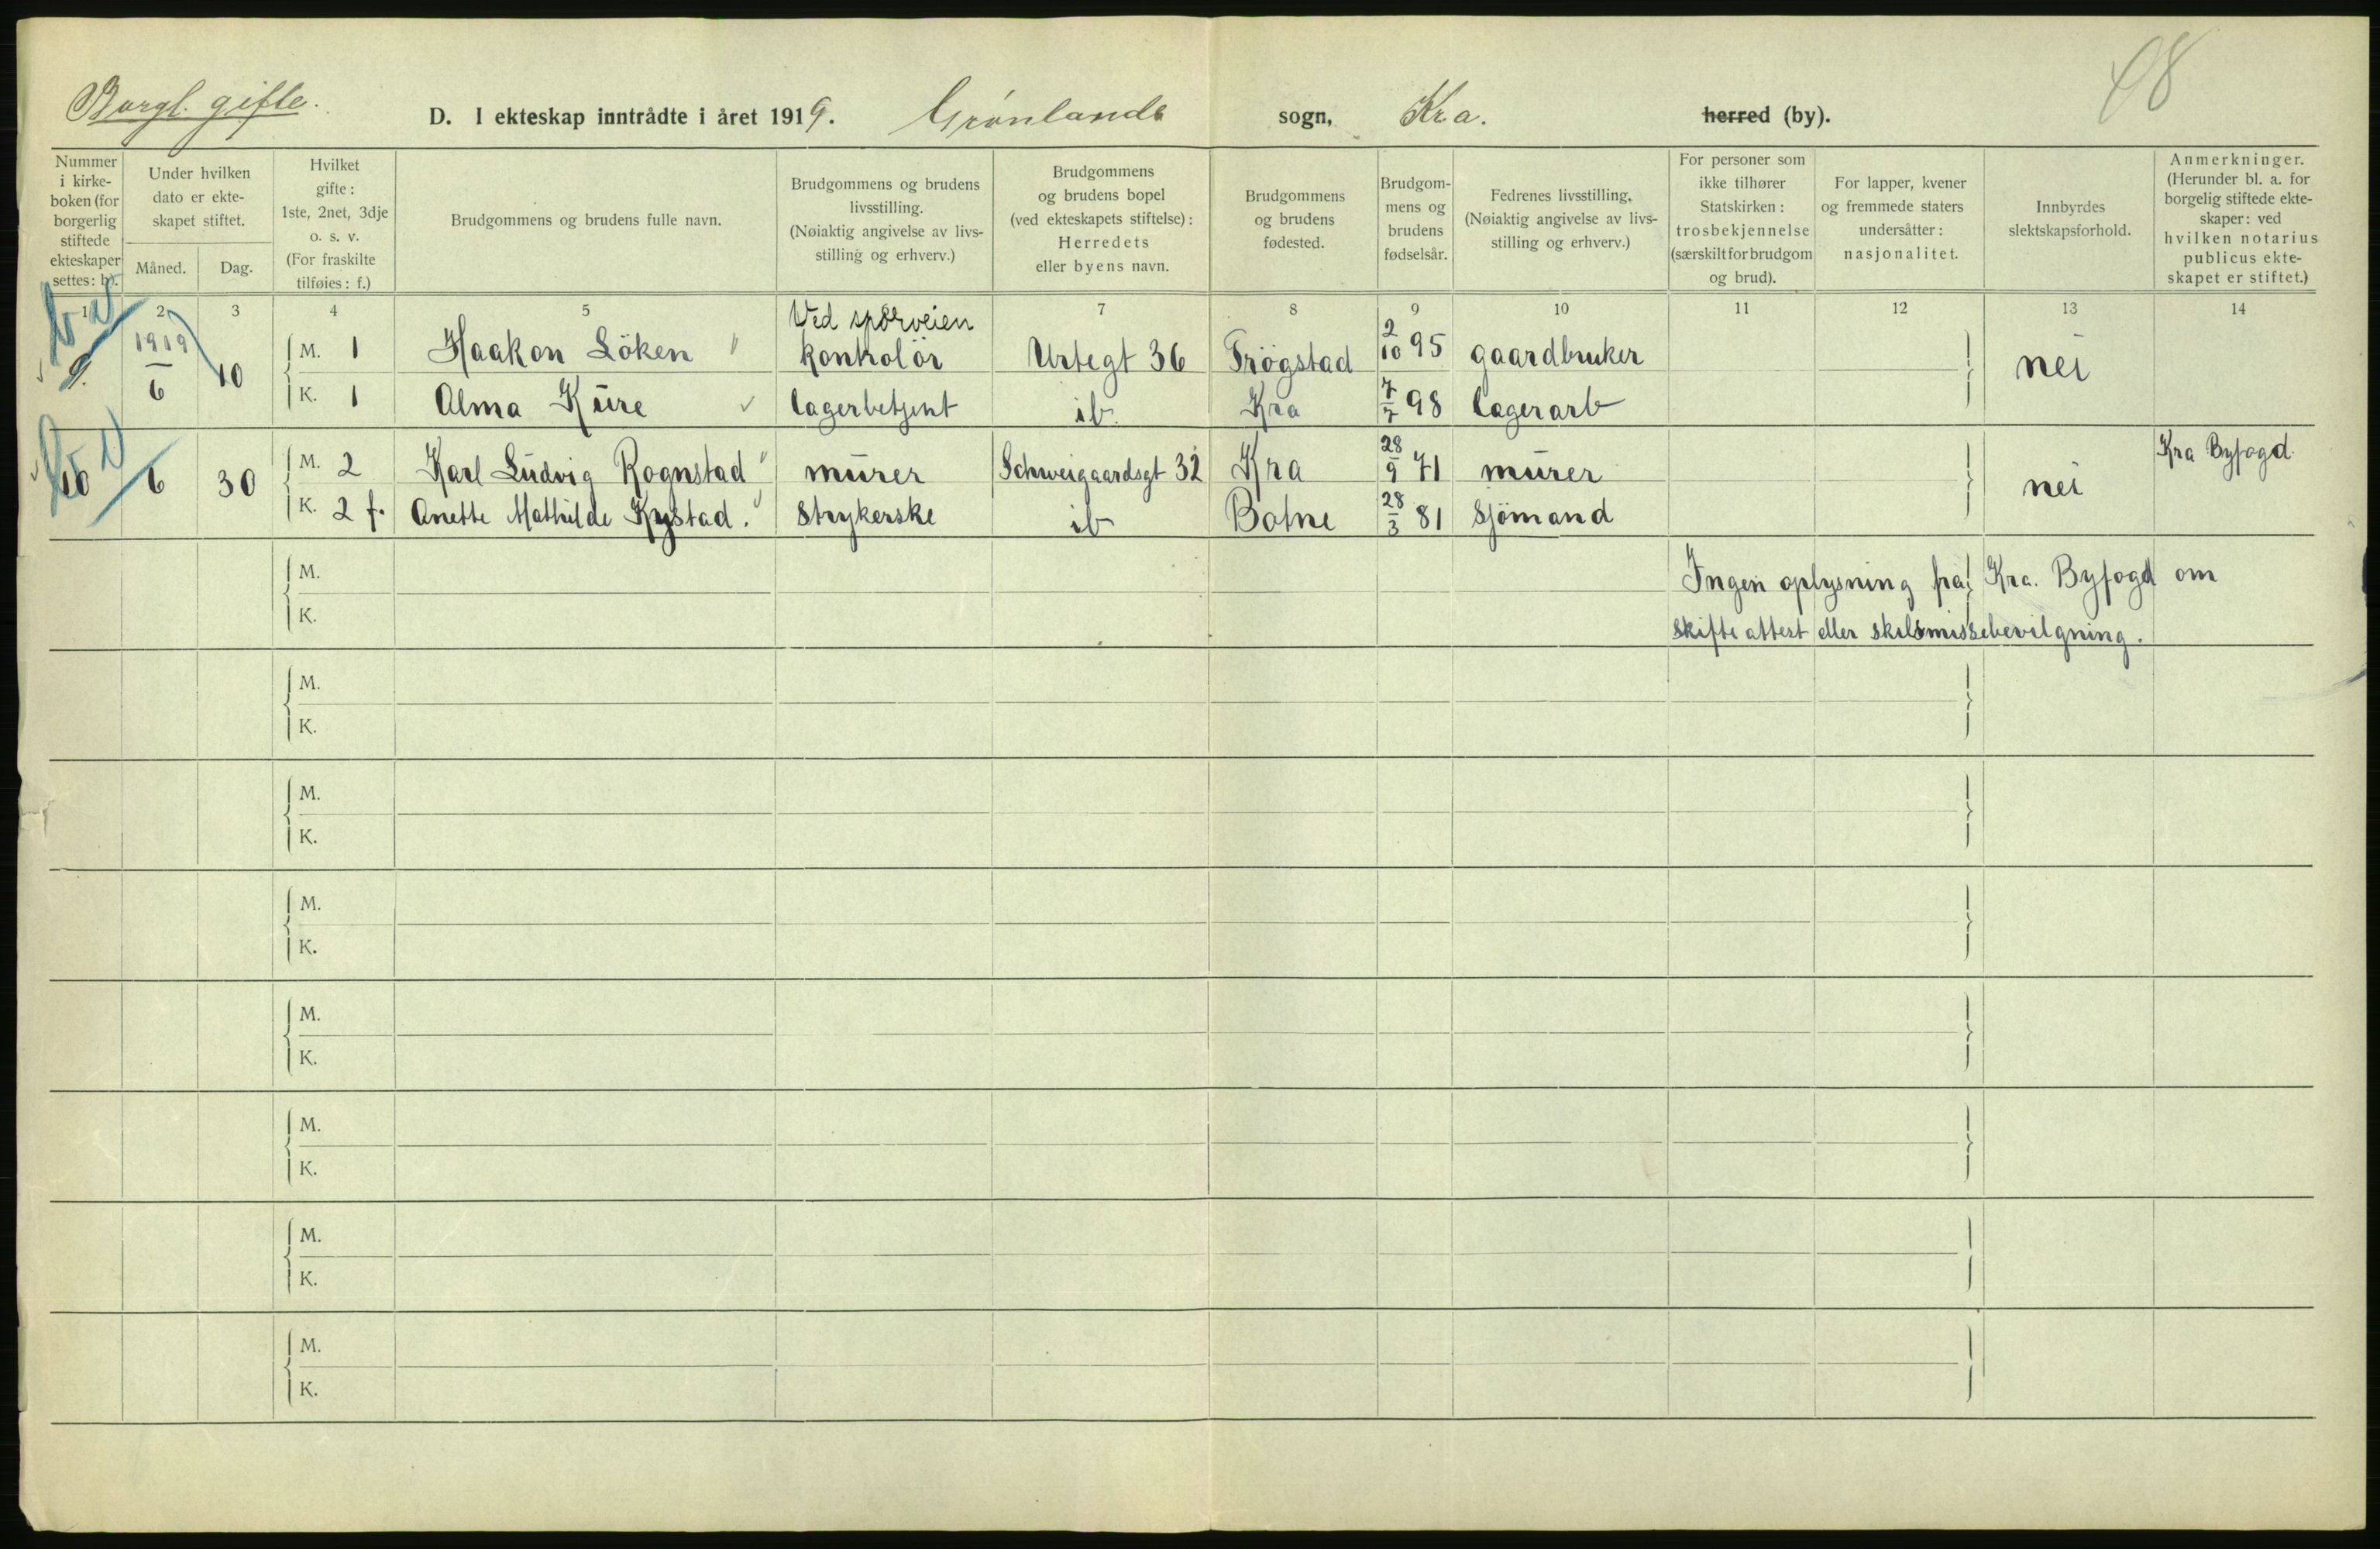 Borgl. gifte.
D. I ekteskap inntrådte i året 1919. Grønlands sogn, Kra. herred (by).
Nummer i kirkeboken (for borgerlig stiftede ekteskaper settes: b).
Under hvilken dato er ekteskapet stiftet.
Måned. Dag.
Hvilket gifte: 1ste, 2net, 3dje o. s. v. (For fraskilte tilføies: f.)
Brudgommens og brudens fulle navn.
Brudgommens og brudens livsstilling. (Nøiaktig angivelse av livsstilling og erhverv.)
Brudgommens og brudens bopel (ved ekteskapets stiftelse): Herredets eller byens navn.
Brudgommens og brudens fødested.
Brudgommens og brudens fødselsår.
Fedrenes livsstilling, (Nøiaktig angivelse av livsstilling og erhverv.)
For personer som ikke tilhører Statskirken: trosbekjennelse (særskilt for brudgom og brud).
For lapper, kvener og fremmede staters undersåtter: nasjonalitet.
Innbyrdes slektskapsforhold.
Anmerkninger. (Herunder bl. a. for borgelig stiftede ekteskaper: ved hvilken notarius publicus ekteskapet er stiftet.)
1 2 3 4 5 6 7 8 9 10 11 12 13 14
9. 1919 6 10 M. 1 Haakon Löken Ved sporveien kontrolör Urtegt 36 Trögstad 2/10 95 gaardbruker nei
K. 1 Alma Kure lagerbetjent ib. Kra 7/7 98 lagerarb
10 6 30 M. 2 Karl Ludvig Rognstad murer Schweigaardsgt 32 Kra 28/9 71 murer nei Kra Byfogd.
K. 2 f. Anette Mathilde Kystad. Strykerske ib Botne 28/3 81 Sjömand
M. Ingen oplysning fra Kra. Byfogd om
K. skifteattest eller skilsmissebevilgning.
M.
K.
M.
K.
M.
K.
M.
K.
M.
K.
M.
K.
M.
K.